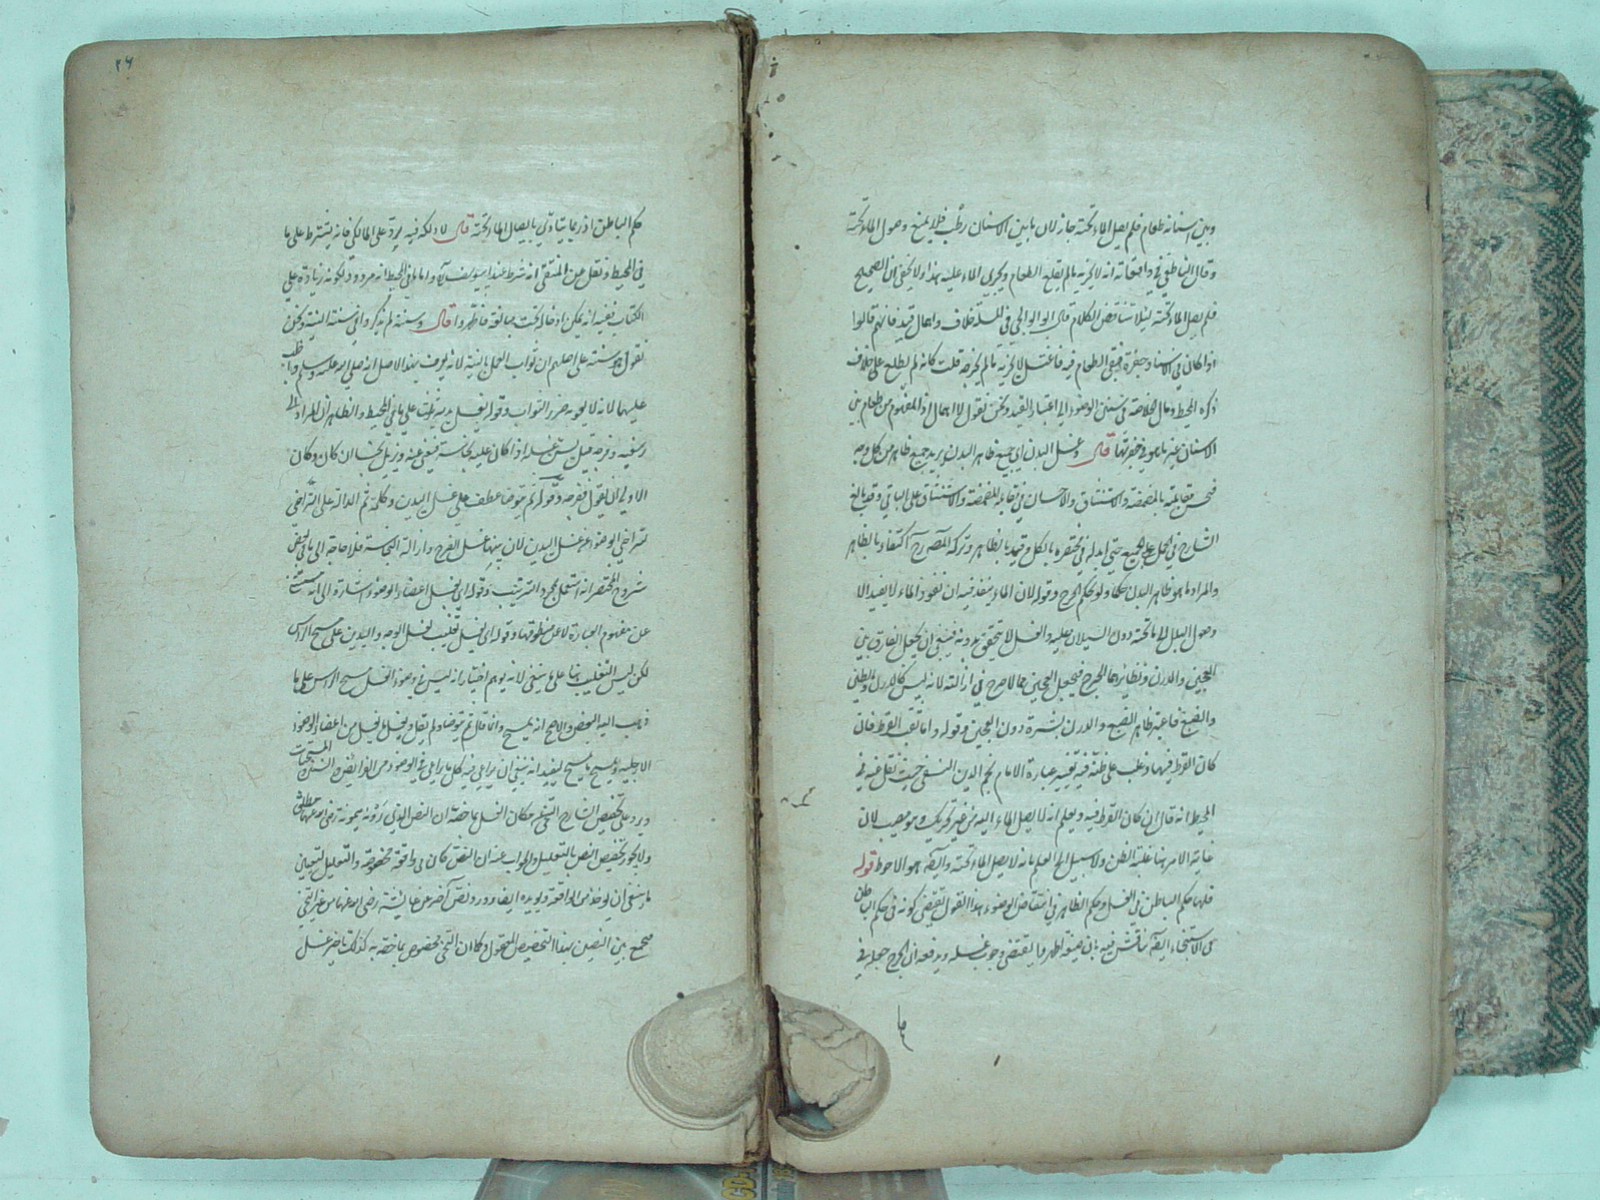 وبين اسنانه طعام فلم يصل الماء تحته جاز لان ما بين الاسنان رطب فلا يمنع وصول الماء تحته
وقال الناطفي في واقعاته انه لا يجزيه ما لم يقلع الطعام ويجري الماء عليه هذا ولا يخفى ان الصحيح
فلم يصل الماء تحته لئلا يتناقض الكلام قال الولوالجي في المسئلة خلاف واهمال قيد فانهم قالوا
اذا كان في اسنانه حفرة فبقي الطعام فيه فاغتسل لا يجزيه ما لم يخرجه قلت كانه لم يطلع على خلاف
ذكره المحيط وقال الخلاصة في سنن الوضوء الى اعتبار القيد ونحن نقول لا اهمال اذ المفهوم من طعام بين
الاسنان غير ما هو في حفرتها قال وغسل البدن اي جميع ظاهر البدن يريد جميع ظاهره من كل وجه
فحسن مقابلته بالمضمضة والاستنشاق والاحسان في بقاء المضمضة والاستنشاق على الباقي وقد بالغ
الشارح في الحمل على الجميع حتى ابدله في مختصره بالكل وقيده بالظاهر وتركه المص رح اكتفاء بالظاهر
والمراد ما هو ظاهر البدن حكما ولو بحكم الحرج وقوله لان الماء ينفذ فيه ان نفوذ الماء لا يفيد الا
وصول البلل الى ما تحته دون السيلان عليه والغسل لا يتحقق بدونه فينبغي ان يجعل الفارق بين
العجين والدرن ونظائرهما الحرج فيجعل العجين مما لا حرج في ازالته لانه ليس كالدرن والطين
والصبغ فاعتبر ظاهر الصبغ والدرن بشرة دون العجين وقوله واما ثقب القرط فان
كان القرط فيها وغلب على ظنه فيه تغيير عبارة الامام نجم الدين النسفي حيث نقل عنه في
المحيط انه قال ان كان القرط فيه ويعلم انه لا يصل الماء اليه من غير تحريك وهو مصيب لان
غاية الامر هنا غلبة الظن ولا سبيل الى العلم بانه لا يصل الماء تحته وايضا هو الاحوط قوله
فلها حكم الباطن في الغسل وحكم الظاهر في انتقاض الوضوء هذا القول يقتضي كونه في حكم الباطن
في الاستنجاء ايضا ناقش فيه بان صيغة اطهروا يقتضي وجوب غسله ويدفعه ان الحرج جعله في
ما
٢٦
حكم الباطن اذ ربما يتاذى بايصال الماء تحته قال لا دلكه فيه يرد على المالكي فانه يشترط على ما
في المحيط ونقل عن المنتقى انه شرط عند ابي يوسف ايضا واما ما في المحيط انه مردود لكونه زيادة على
الكتاب ففيه انه يمكن ادخاله تحت مبالغة فاطهروا قال وسنته لم يذكر وا في سنته النية ونحن
نقول لا سنة على اصلهم ان ثواب العمل بالنية لانه يعرف بهذا الاصل انه صلى الله عليه وسلم واظب
عليها لانه لا يجوز حرز الثواب وقوله يغسل يديه ثلثا على ما في المحيط والظاهر ان المراد الى
رسغيه وفرجه قيل يسن غسله اذا كان عليه نجاسة فيغني عنه ويزيل نجسا ان كان وكان
الاولى ان يقول ففرجه وقوله ثم يتوضا عطف على غسل اليدين وكلمة ثم الدالة على التراخي
لتراخي الوضوء عن غسل اليدين لان بينهما غسل الفرج وازالة النجاسة فلا حاجة الى ما في بعض
شروح المختصر انه استعمل لمجرد الترتيب وقوله اي يغسل اعضاء الوضوء اشارة الى انه استثنى
عن مفهوم العبارة لا عن منطوقها وقوله اي يغسل تغليب لغسل الوجه واليدين على مسح الراس
لكن ليس التغليب هنا على ما ينبغي لانه يوهم اختيار انه ليس في وضوء الغسل مسح الراس على ما
ذهب اليه البعض والاصح انه يمسح وانما قال ثم يتوضا ولم يقل ويغسل يغسل من اعضاء الوضوء
الا رجليه ويمسح ما يمسح ليفيد انه ينبغي ان يراعي فيه كل ما يراعى في الوضوء من الفرائض والسنن والمستحبات
ويرد على تخصيص الشارح التنحي عن مكان الغسل بما خصه ان النص الذي روته ميمونة رضي الله عنها مطلق
ولا يجوز تخصيص النص بالتعليل والجواب عنه ان النص كان في واقعة مخصوصة والتعليل لتعيين
ما ينبغي ان يوخذ من الواقعة ويويده ايضا ورود نص آخر عن عايشة رضي الله عنها من غير التنحي
فجمع بين النصين بهذا التخصيص المتحول وكان التنحي مخصوص بما خصه به كذلك تاخير غسل